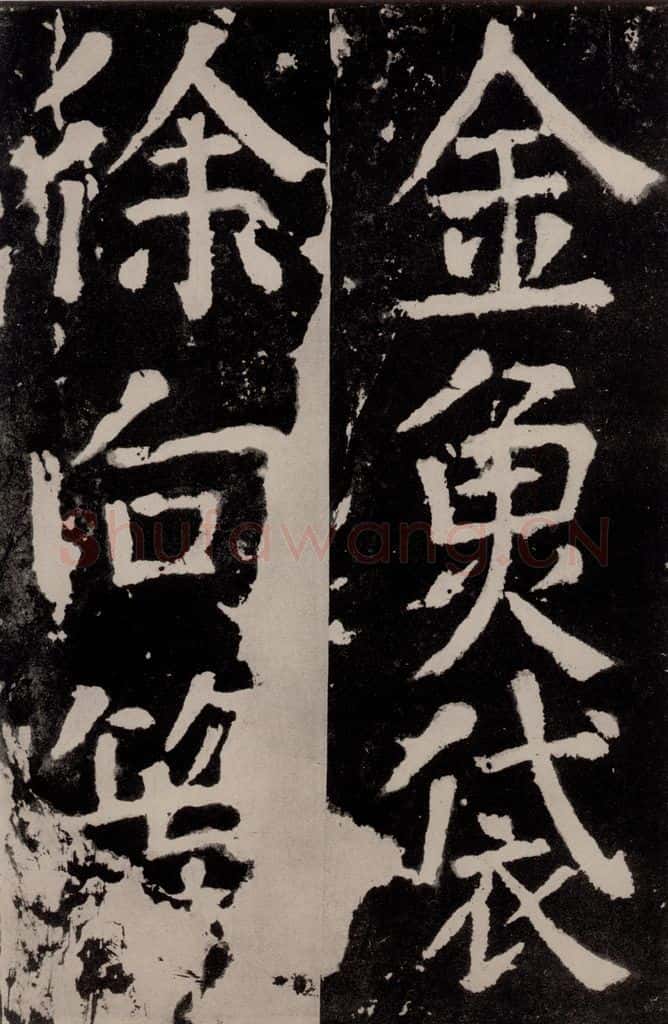 金魚袋
徐向等
Shufawang.CN